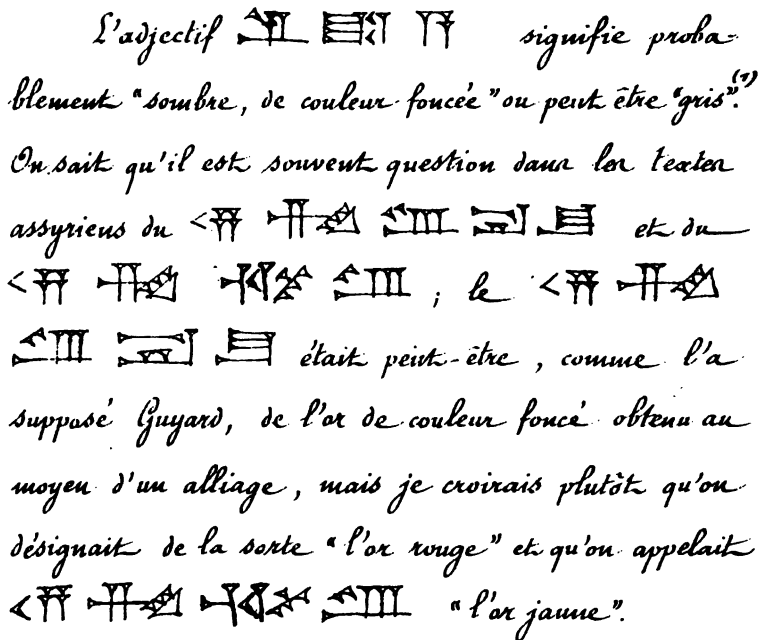 L'adjectif signifie proba-
blement "sombre, de couleur foncée" ou peut être "gris".(1)
On sait qu'il est souvent question dans les textes
assyriens du et du
; le
était peut-être, comme l'a
supposé Guyard, de l'or de couleur foncé obtenu au
moyen d'un alliage, mais je croirais plutôt qu'on
désignait de la sorte "l'or rouge" et qu'on appelait
"l'or jaune".